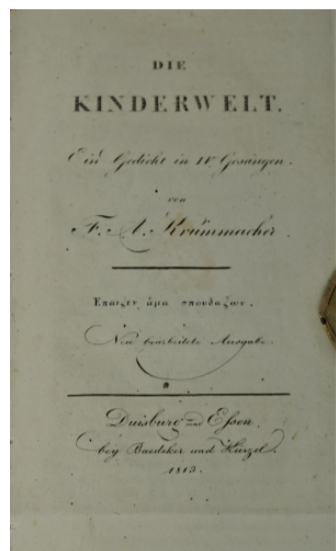 DIE
KINDERWELT.
Ein Gedicht in IV Gesängen.
von
F. A. Krummacher.
Ἔπαιζεν ἅμα σπουδαζων.
Neu bearbeitete Ausgabe.
Duisburg und Essen,
bey Baedeker und Kürzel.
1813.